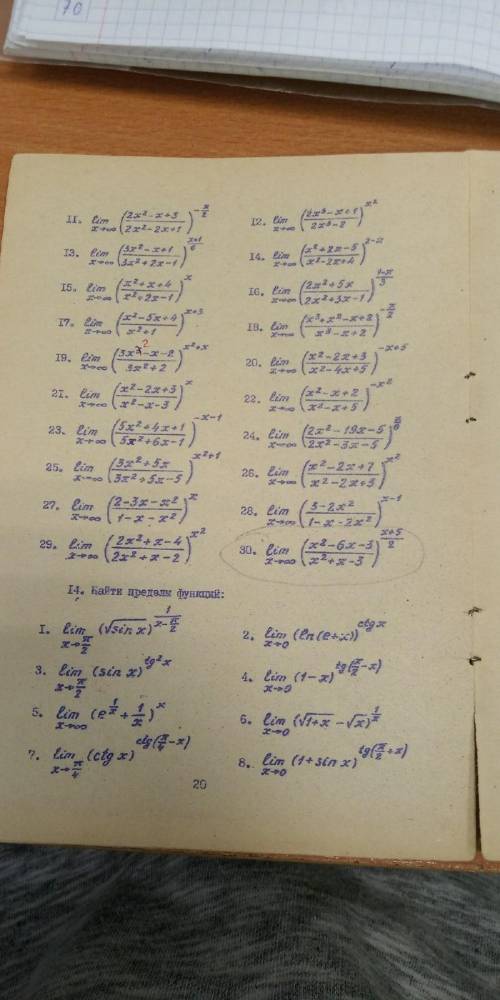 70
11. lim x→∞ ((2x²-x+3)/(2x²-2x+1))^(-x/2)
12. lim x→∞ ((2x³-x+1)/(2x³-2))^(x²)
13. lim x→∞ ((3x²-x+1)/(3x²+2x-1))^((x+1)/6)
14. lim x→∞ ((x²+2x-5)/(x²-2x+4))^(2-x)
15. lim x→∞ ((x²+x+4)/(x²+2x-1))^x
16. lim x→∞ ((2x²+5x)/(2x²+3x-1))^((1-x)/3)
17. lim x→∞ ((x²-5x+4)/(x²+1))^(x+3)
18. lim x→∞ ((x³+x²-x+2)/(x³-x+2))^(-x/2)
19. lim x→∞ ((3x²-x-2)/(3x²+2))^(x²+x)
20. lim x→∞ ((x²-2x+3)/(x²-4x+5))^(-x+5)
21. lim x→∞ ((x²-2x+3)/(x²-x-3))^x
22. lim x→∞ ((x²-x+2)/(x²-x+5))^(-x²)
23. lim x→∞ ((5x²+4x+1)/(5x²+6x-1))^(-x-1)
24. lim x→∞ ((2x²-19x-5)/(2x²-3x-5))^(x/6)
25. lim x→∞ ((3x²+5x)/(3x²+5x-5))^(x²+1)
26. lim x→∞ ((x²-2x+7)/(x²-2x+3))^(x²)
27. lim x→∞ ((2-3x-x²)/(1-x-x²))^x
28. lim x→∞ ((3-2x²)/(1-x-2x²))^(x-1)
29. lim x→∞ ((2x²+x-4)/(2x²+x-2))^(x²)
30. lim x→∞ ((x²-6x-3)/(x²+x-3))^((x+5)/2)
14. Найти пределы функций:
1. lim x→π/2 (√sin x)^(1/(x-π/2))
2. lim x→0 (ln(e+x))^(ctg x)
3. lim x→π/2 (sin x)^(tg²x)
4. lim x→0 (1-x)^(tg(π/2-x))
5. lim x→∞ (e^(1/x)+1/x)^x
6. lim x→0 (√(1+x)-√x)^(1/x)
7. lim x→π/4 (ctg x)^(ctg(π/4-x))
8. lim x→0 (1+sin x)^(tg(π/2+x))
20